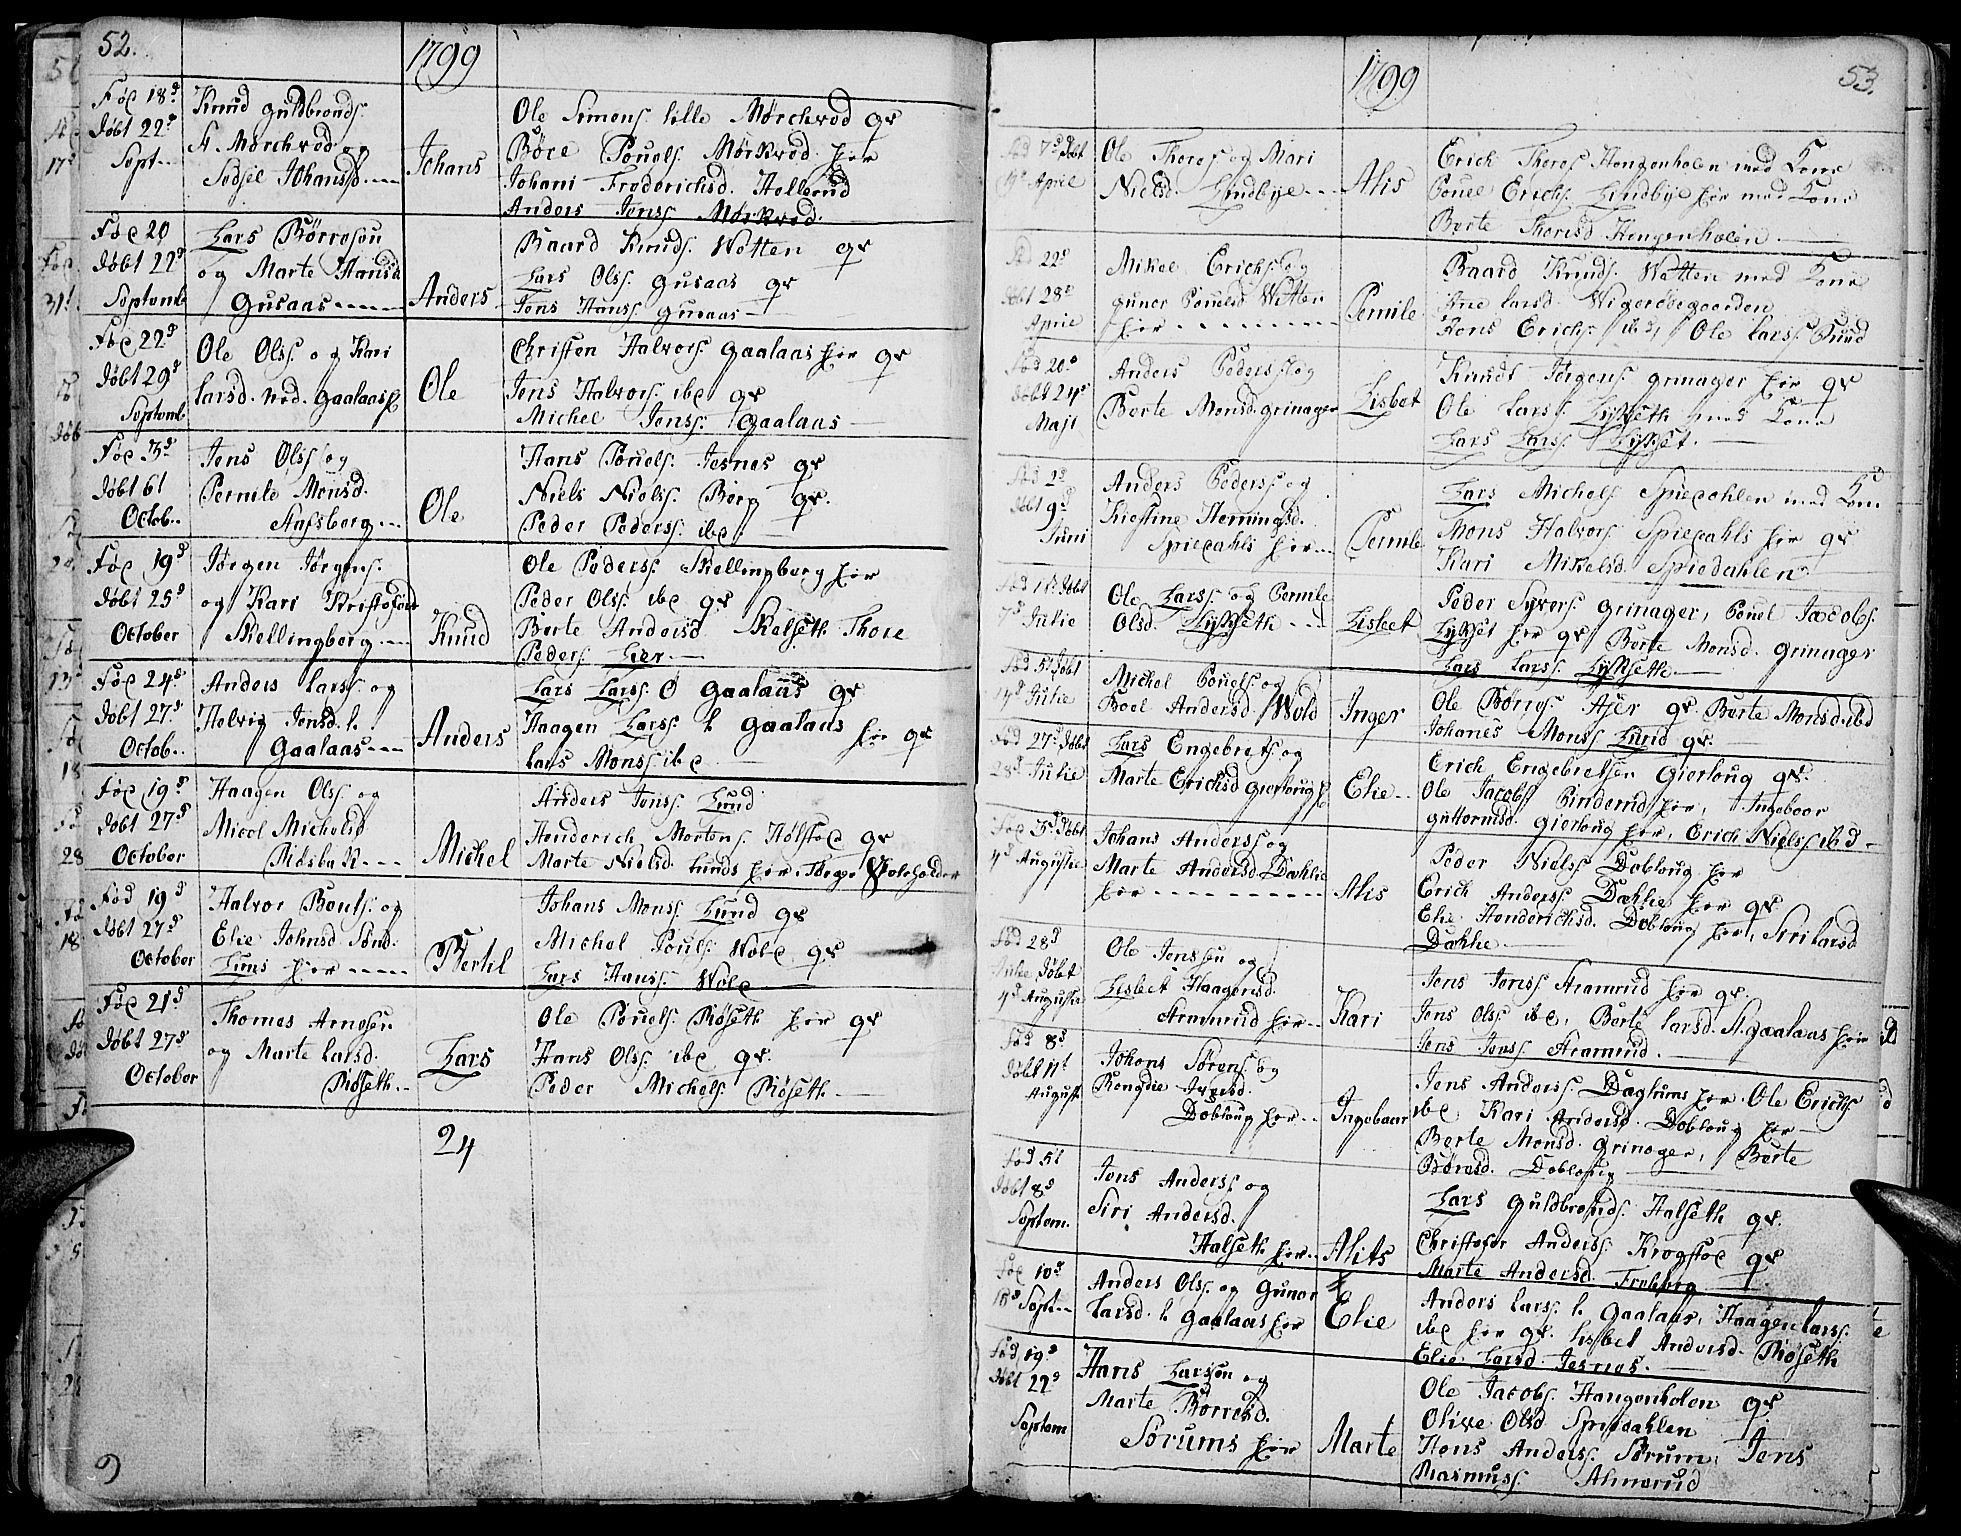 52.
1799
Fød 18d
Døbt 22d
Sept..
Knud Guldbrands.
St. Mørchved og
Sidsel Johansd.
Johans
Ole Simens. lille Mørchved gr
Børe Povels. Mørkved her
Johani Frederichsd. Hollerud
Anders Jenss. Mørkved.
Fød 20
Døbt 22d
Septemb
Lars Børresøn
og Marte Hansd
Gusaas
Anders
Baard Knuds. Wetten gr
Lars Olss. Gusaas gr
Jens Hanss. Gusaas
Fød 22d
Døbt 29d
Septemb
Ole Olss. og Kari
Larsd. ned. Gaalaas
Ole
Christen Halvors. Gaalaas her gr
Jens Halvors. ibd gr
Michel Jenss. Gaalaas
Fød 3d
Døbt 6t
Octob..
Jens Olss og
Pernile Monsd.
Ole
Hans Povels. Jesnes gr
Niels Nielss. Berg gr.
Peder Peders. ibd.
Fød 19d
Døbt 25d
October
Jørgen Jørgens.
og Kari Kristofersd
Skellingberg
Knud
Ole Peders. Skellingberg her
Peder Olss. ibd gr
Berte Andersd. Skelseth. Thore
Peders. Lier
Fød 24d
Døbt 27d
Octob..
Anders Larss. og
Helvig Jensd. l.
Gaalaas
Anders
Lars Larss. Ø Gaalaas gr
Haagen Larss. l Gaalaas her gr
Lars Monss ibd
Fød 19d
Døbt 27d
October
Haagen Olss og
Micol Michelsd
Risbak
Michel
Anders Jenss. Lund
Henderich Mortens. Hølstad gr
Marte Nielsd. Lunds her.
Fød 19d
Døbt 27d
October
Halvor Bentss. og
Elie Johnsd Sønd.
Lunds her
Bertil
Johans Monss. Lund gr
Michel Pouls. Wold gr
Lars Hanss. Wold
Fød 21d
Døbt 27d
October
Thomas Arnesen
og Marte Larsd.
Røseth.
Lars
Ole Povels. Røseth her gr
Hans Olss. ibd gr.
Peder Michels. Røseth.
24
53.
1799
Fød 7d Døbt
April
Ole Thores og Mari
Nielsd. Lundbye
Alis
Erich Thores Hengenholen med Kone
Povel Erichs. Lundbye her med Kone
Berte Thoresd Hengenholen
Fød 22d
Døbt 28d
April
Mikel Erichs. og
Gunor Povelsd Wetten
her
Pernile
Baard Knuds. Wetten med Kone
Lars Larsd.
Hans Erichs. ibd, Ole Larss. Lund
Fød 20d
Døbt 24d
Maji
Anders Peders og
Berte Monsd. Grinager
Lisbet
Knudt Jørgens. Grinager her gr
Ole Larss. Lykseth med Kone
Lars Larss. Lykset.
Fød 2d
Døbt 9d
Juni
Anders Peders og
Kiestine Hemingsd.
Spiedahls her
Pernile
Lars Michels Spiedahlen med Kone
Mons Halvors. Spiedahls her gr
Kari Mikelsd. Spiedahlen
Fød 1st Døbt
7d Julie
Ole Larss og Pernile
Olsd. Lykseth
Lisbet
Peder Syvers. Grinager, Povel Jacobs.
Lykset her gr Berte Monsd. Grinager
Lars Larss. Lykseth
Fød 5t Døbt
14d Julie
Michel Povels. og
Boel Andersd. Wold
Inger
Ole Børres. Ajer gr. Berte Monsd. ibd
Johanes Monss Lund gr.
Fød 27d Døbt
28d Julie
Lars Engebrets og
Marte Erichsd Gierloug h
Elie
Erich Engebretsen Gierloug gr.
Ole Jacobs. Pinderud her, Ingeboor
Guttormsd. Gierloug her, Erich Nielss ibd
Fød 3d Døbt
4d Augusti
Johans Anderss og
Marte Andersd. Dæhlie
her
Alis
Peder Nielss. Dobloug her
Erich Anderss. Dæhlie her gr
Elie Henderichsd. Dobloug her, Siri Larsd
Dæhlie
Fød 28d
Julie Døbt
4d Augusti
Ole Jenssen og
Lisbet Haagensd.
Aramrud her
Kari
Jens Jenss Aramrud her gr.
Jens Olss ibd, Berte Larsd. St. Gaalaas her
Jens Jenss Aramrud.
Fød 8d
Døbt 11t
August
Johans Sørens og
Bengdie
Dobloug her
Ingebaar
Jens Anderss. Daglums her. Ole Erichs.
ibd Kari Andersd. Dobloug her
Berte Monsd. Grinager, Berte
Børesd. Dobloug
Fød 5t
Døbt 8d
Septem.
Jens Anderss. og
Siri Andersd.
Halseth her
Alits
Lars Guldbrands. Halseth gr.
Christofer Anderss. Krogstad gr
Marte Andersd. Freberg
Fød 10d
18d Sept
Anders Olss. og Gunor
Larsd. l Gaalaas her
Elie
Anders Larss. l. Gaalaas, Haagen Larss.
ibd her gr. Lisbet Andersd. Røseth
Elie Larsd. Jesnes.
Fød 19d
Døbt 22d
Septem
Hans Larsøn og
Marte Børresd.
Sørums her
Marte
Ole Jacobs. Hangenholen gr
Olive Olsd Spiedahlen
Hans Anderss. Sørum, Jens
Rasmuss. Almerud